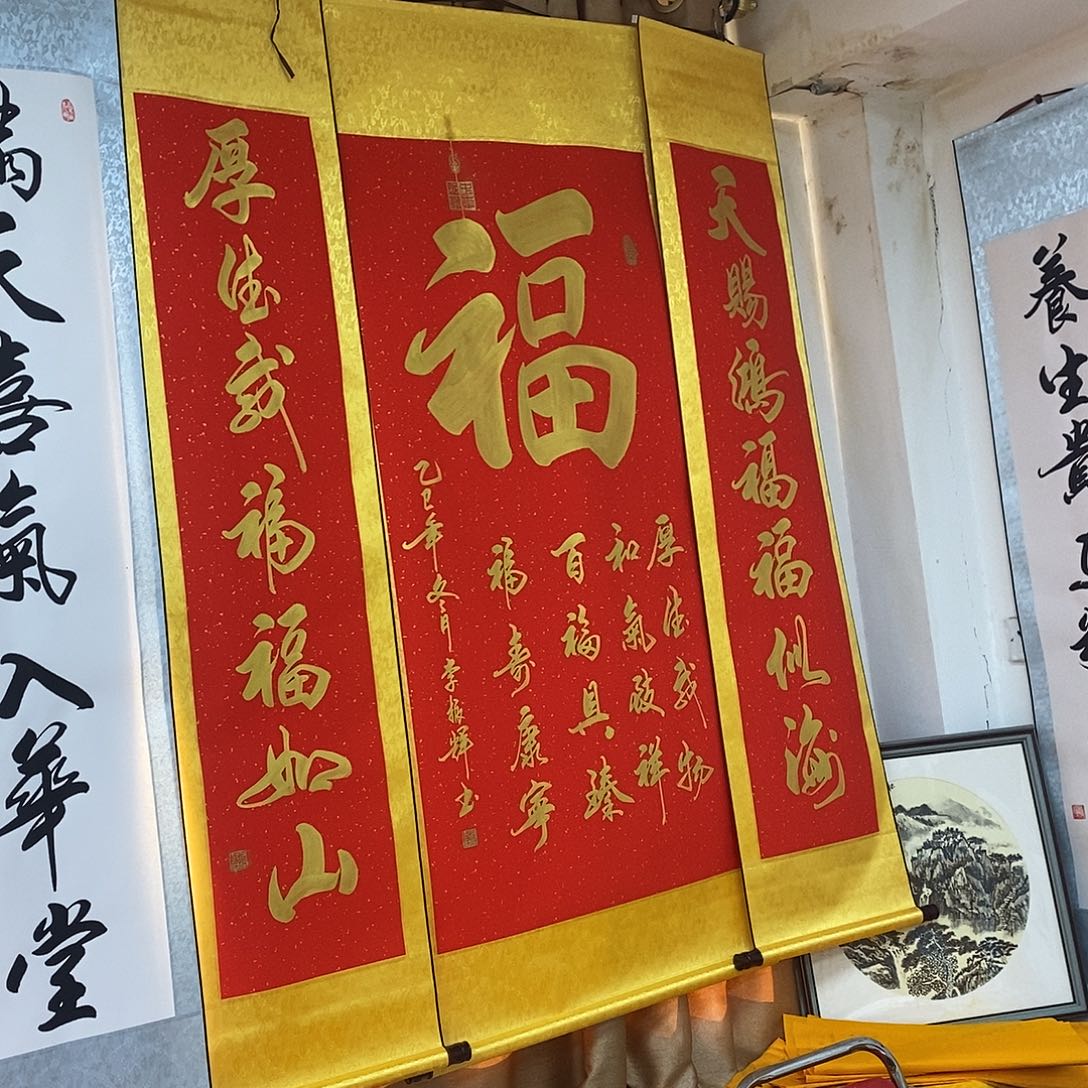 養生貴
天賜鴻福福似海
福
厚德載物
和氣致祥
百福具臻
福壽康寧
乙巳年冬月李振輝书
厚德載福福如山
滿天喜氣入華堂